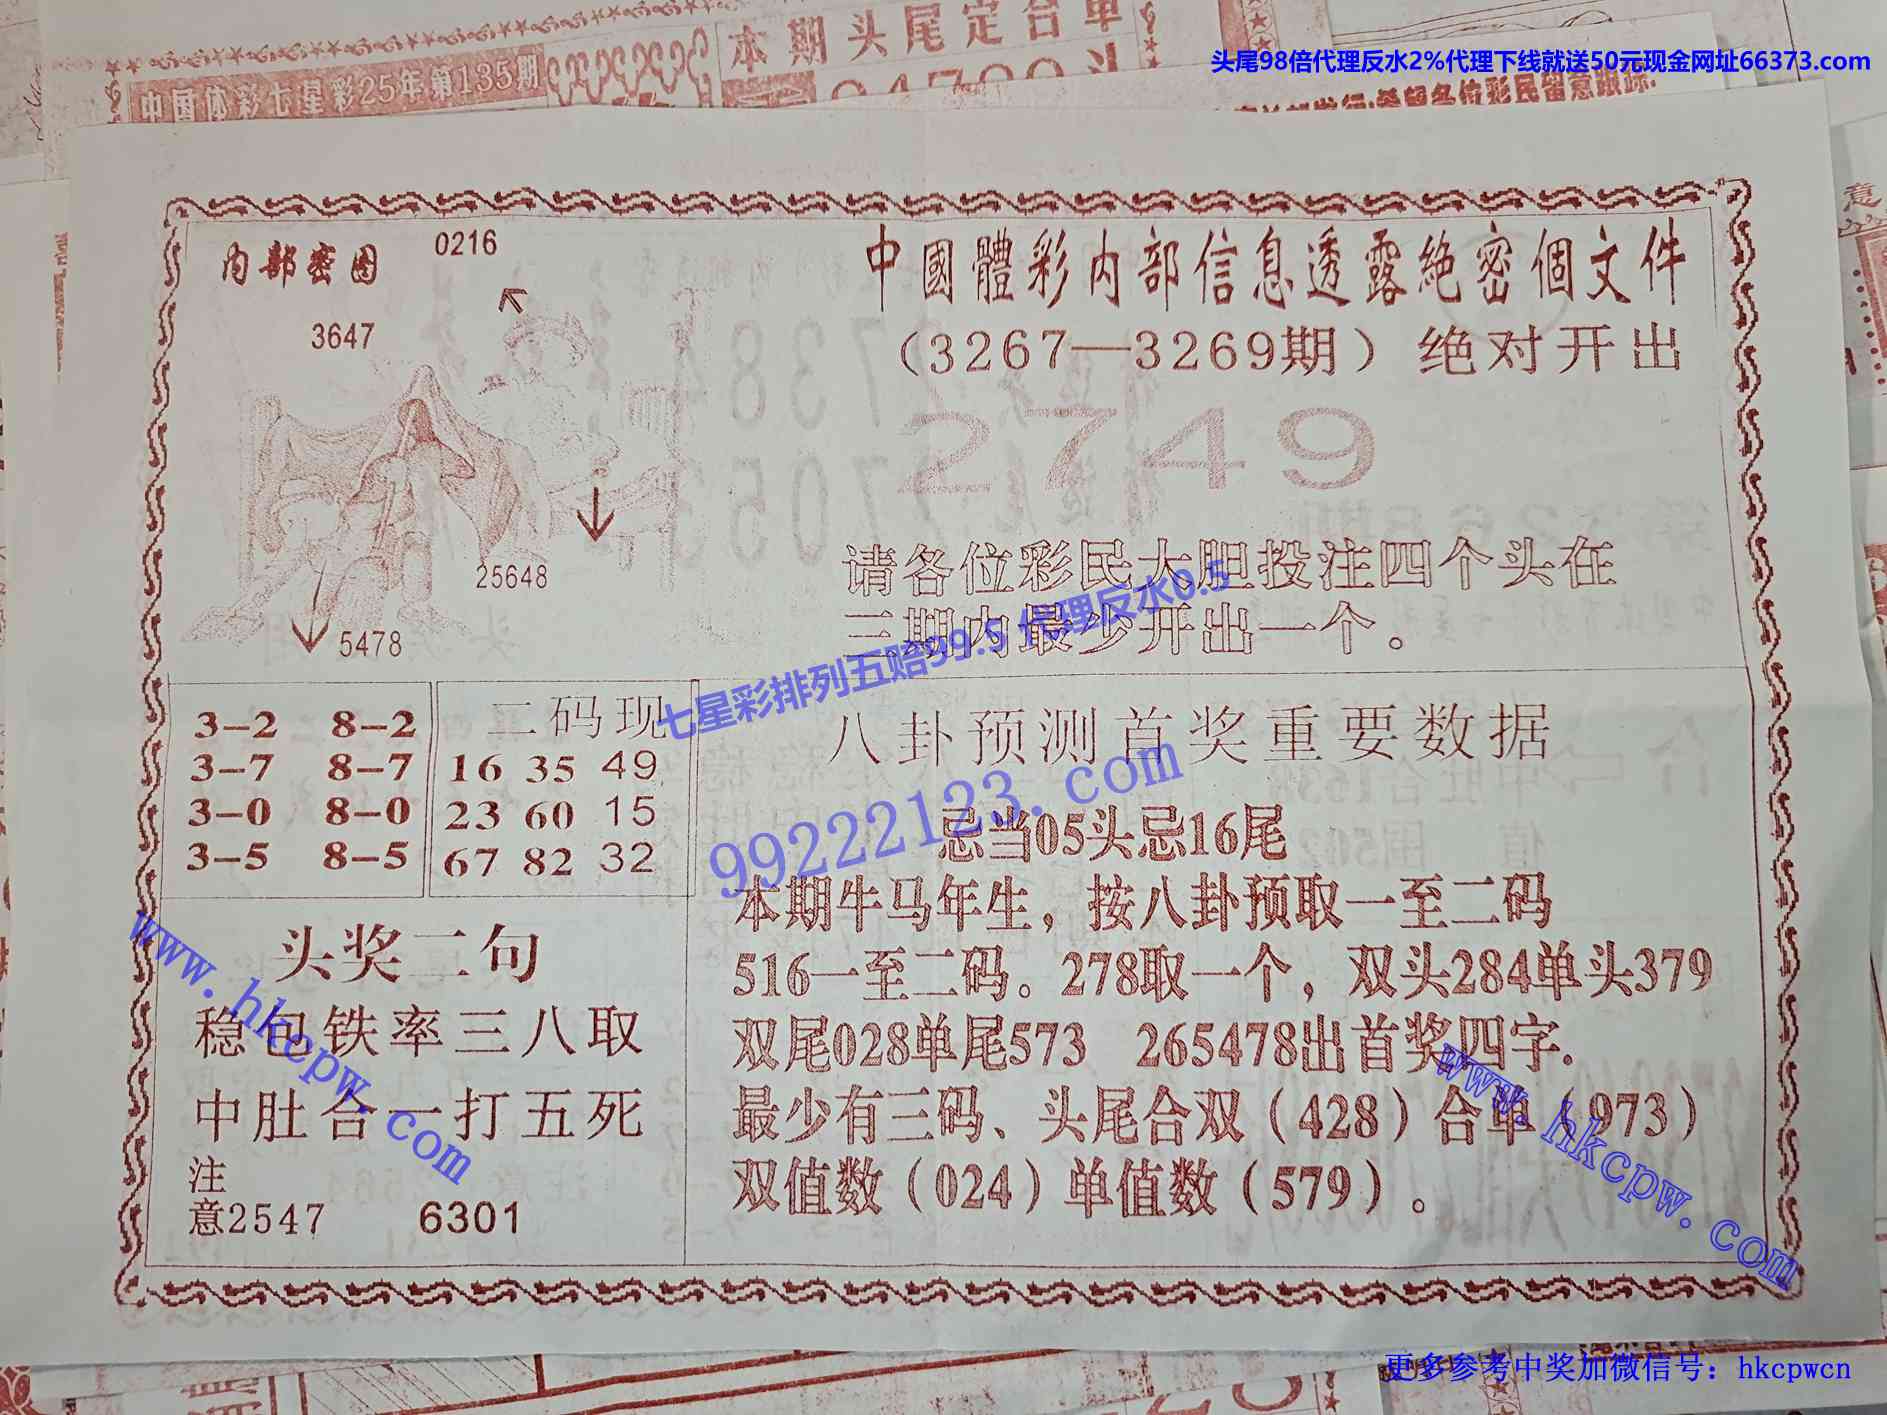 本期头尾定合单
头尾98倍代理反水2%代理下线就送50元现金网址66373.com
中国体彩七星彩25年第135期
内部密图
0216
3647
25648
5478
中國體彩内部信息透露絶密個文件
（3267—3269期）绝对开出
2749
请各位彩民大胆投注四个头在
三期内最少开出一个。
七星彩排列五赔99.5 代理反水0.5
99222123.com
3-2 8-2
3-7 8-7
3-0 8-0
3-5 8-5
二码现
16 35 49
23 60 15
67 82 32
八卦预测首奖重要数据
忌当05头忌16尾
本期牛马年生，按八卦预取一至二码
516一至二码。278取一个，双头284单头379
双尾028单尾573 265478出首奖四字.
最少有三码、头尾合双（428）合单（973）
双值数（024）单值数（579）。
头奖二句
稳包铁率三八取
中肚合一打五死
注
意2547 6301
www.hkcpw.com
www.hkcpw.com
更多参考中奖加微信号：hkcpwcn